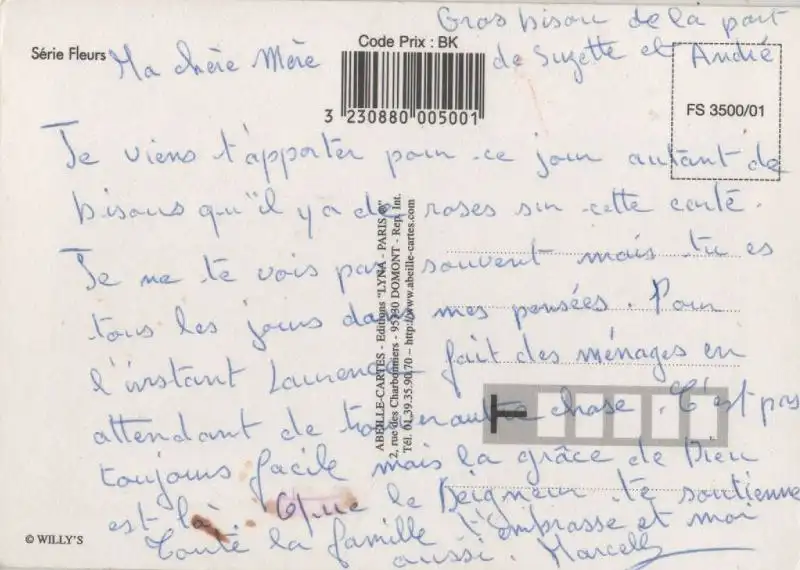 Gros bisou de la part
de Suzette et André
Série Fleurs
Code Prix : BK
3 230880 005001
FS 3500/01
Ma chère Mère
Je viens t'apporter pour ce jour autant de
bisous qu'il y a de roses sur cette carte.
Je ne te vois pas souvent mais tu es
tous les jours dans mes pensées. Pour
l'instant Laurence fait des ménages en
attendant de trouver autre chose. C'est pas
toujours facile mais la grâce de Dieu
est là. Que le Seigneur te soutienne
Toute la famille t'embrasse et moi
aussi. Marcelle
ABEILLE-CARTES - Editions "LYNA - PARIS"
2, rue des Charbonniers - 95330 DOMONT - Rep. Int.
Tél. 01.39.35.90.70 – http://www.abeille-cartes.com
© WILLY'S